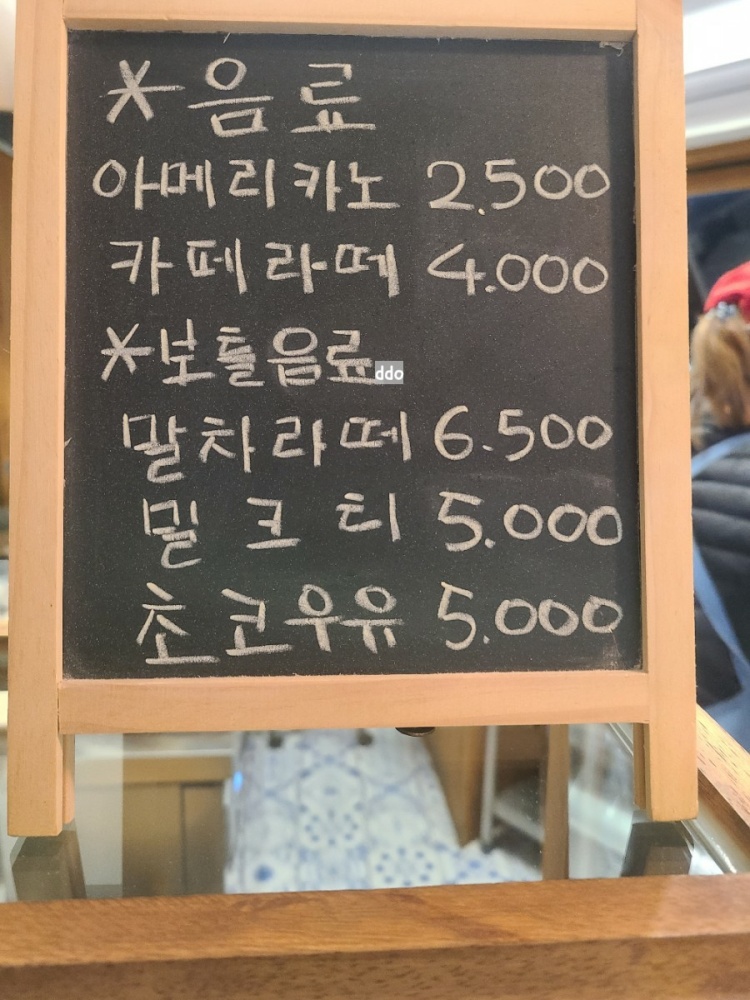 *음료
아메리카노 2.500
카페라떼 4.000
*보틀음료
ddo
말차라떼 6.500
밀크티 5.000
초코우유 5.000